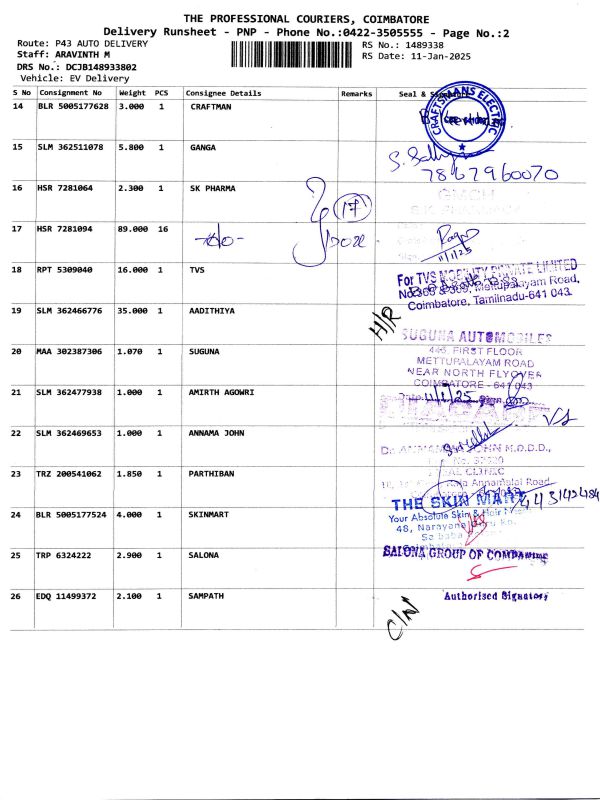 THE PROFESSIONAL COURIERS, COIMBATORE
Delivery Runsheet - PNP - Phone No.:0422-3505555 - Page No.:2
Route: P43 AUTO DELIVERY
Staff: ARAVINTH M
DRS No.: DCJB148933802
Vehicle: EV Delivery
RS No.: 1489338
RS Date: 11-Jan-2025
S No Consignment No Weight PCS Consignee Details Remarks Seal &
14 BLR 5005177628 3.000 1 CRAFTMAN
CRAFTSMANS ELECTRIC
15 SLM 362511078 5.800 1 GANGA
7867960070
16 HSR 7281064 2.300 1 SK PHARMA
17
17 HSR 7281094 89.000 16
11/1/25
18 RPT 5309040 16.000 1 TVS
For TVS MOBILITY PRIVATE LIMITED
Mettupalayam Road,
Coimbatore, Tamilnadu-641 043.
19 SLM 362466776 35.000 1 AADITHIYA
H/R
20 MAA 302387306 1.070 1 SUGUNA
SUGUNA AUTOMOBILES
445, FIRST FLOOR
METTUPALAYAM ROAD
NEAR NORTH FLYOVER
COIMBATORE - 641 043
21 SLM 362477938 1.000 1 AMIRTH AGOWRI
Date: 11/1/25 Sign.
22 SLM 362469653 1.000 1 ANNAMA JOHN
JOHN M.D.D.,
23 TRZ 200541062 1.850 1 PARTHIBAN
Annamalai Road
24 BLR 5005177524 4.000 1 SKINMART
THE SKIN MART
Your Absolute Skin & Hair
48, Narayana
25 TRP 6324222 2.900 1 SALONA
SALONA GROUP OF COMPANIES
26 EDQ 11499372 2.100 1 SAMPATH
Authorised Signatory
C/N